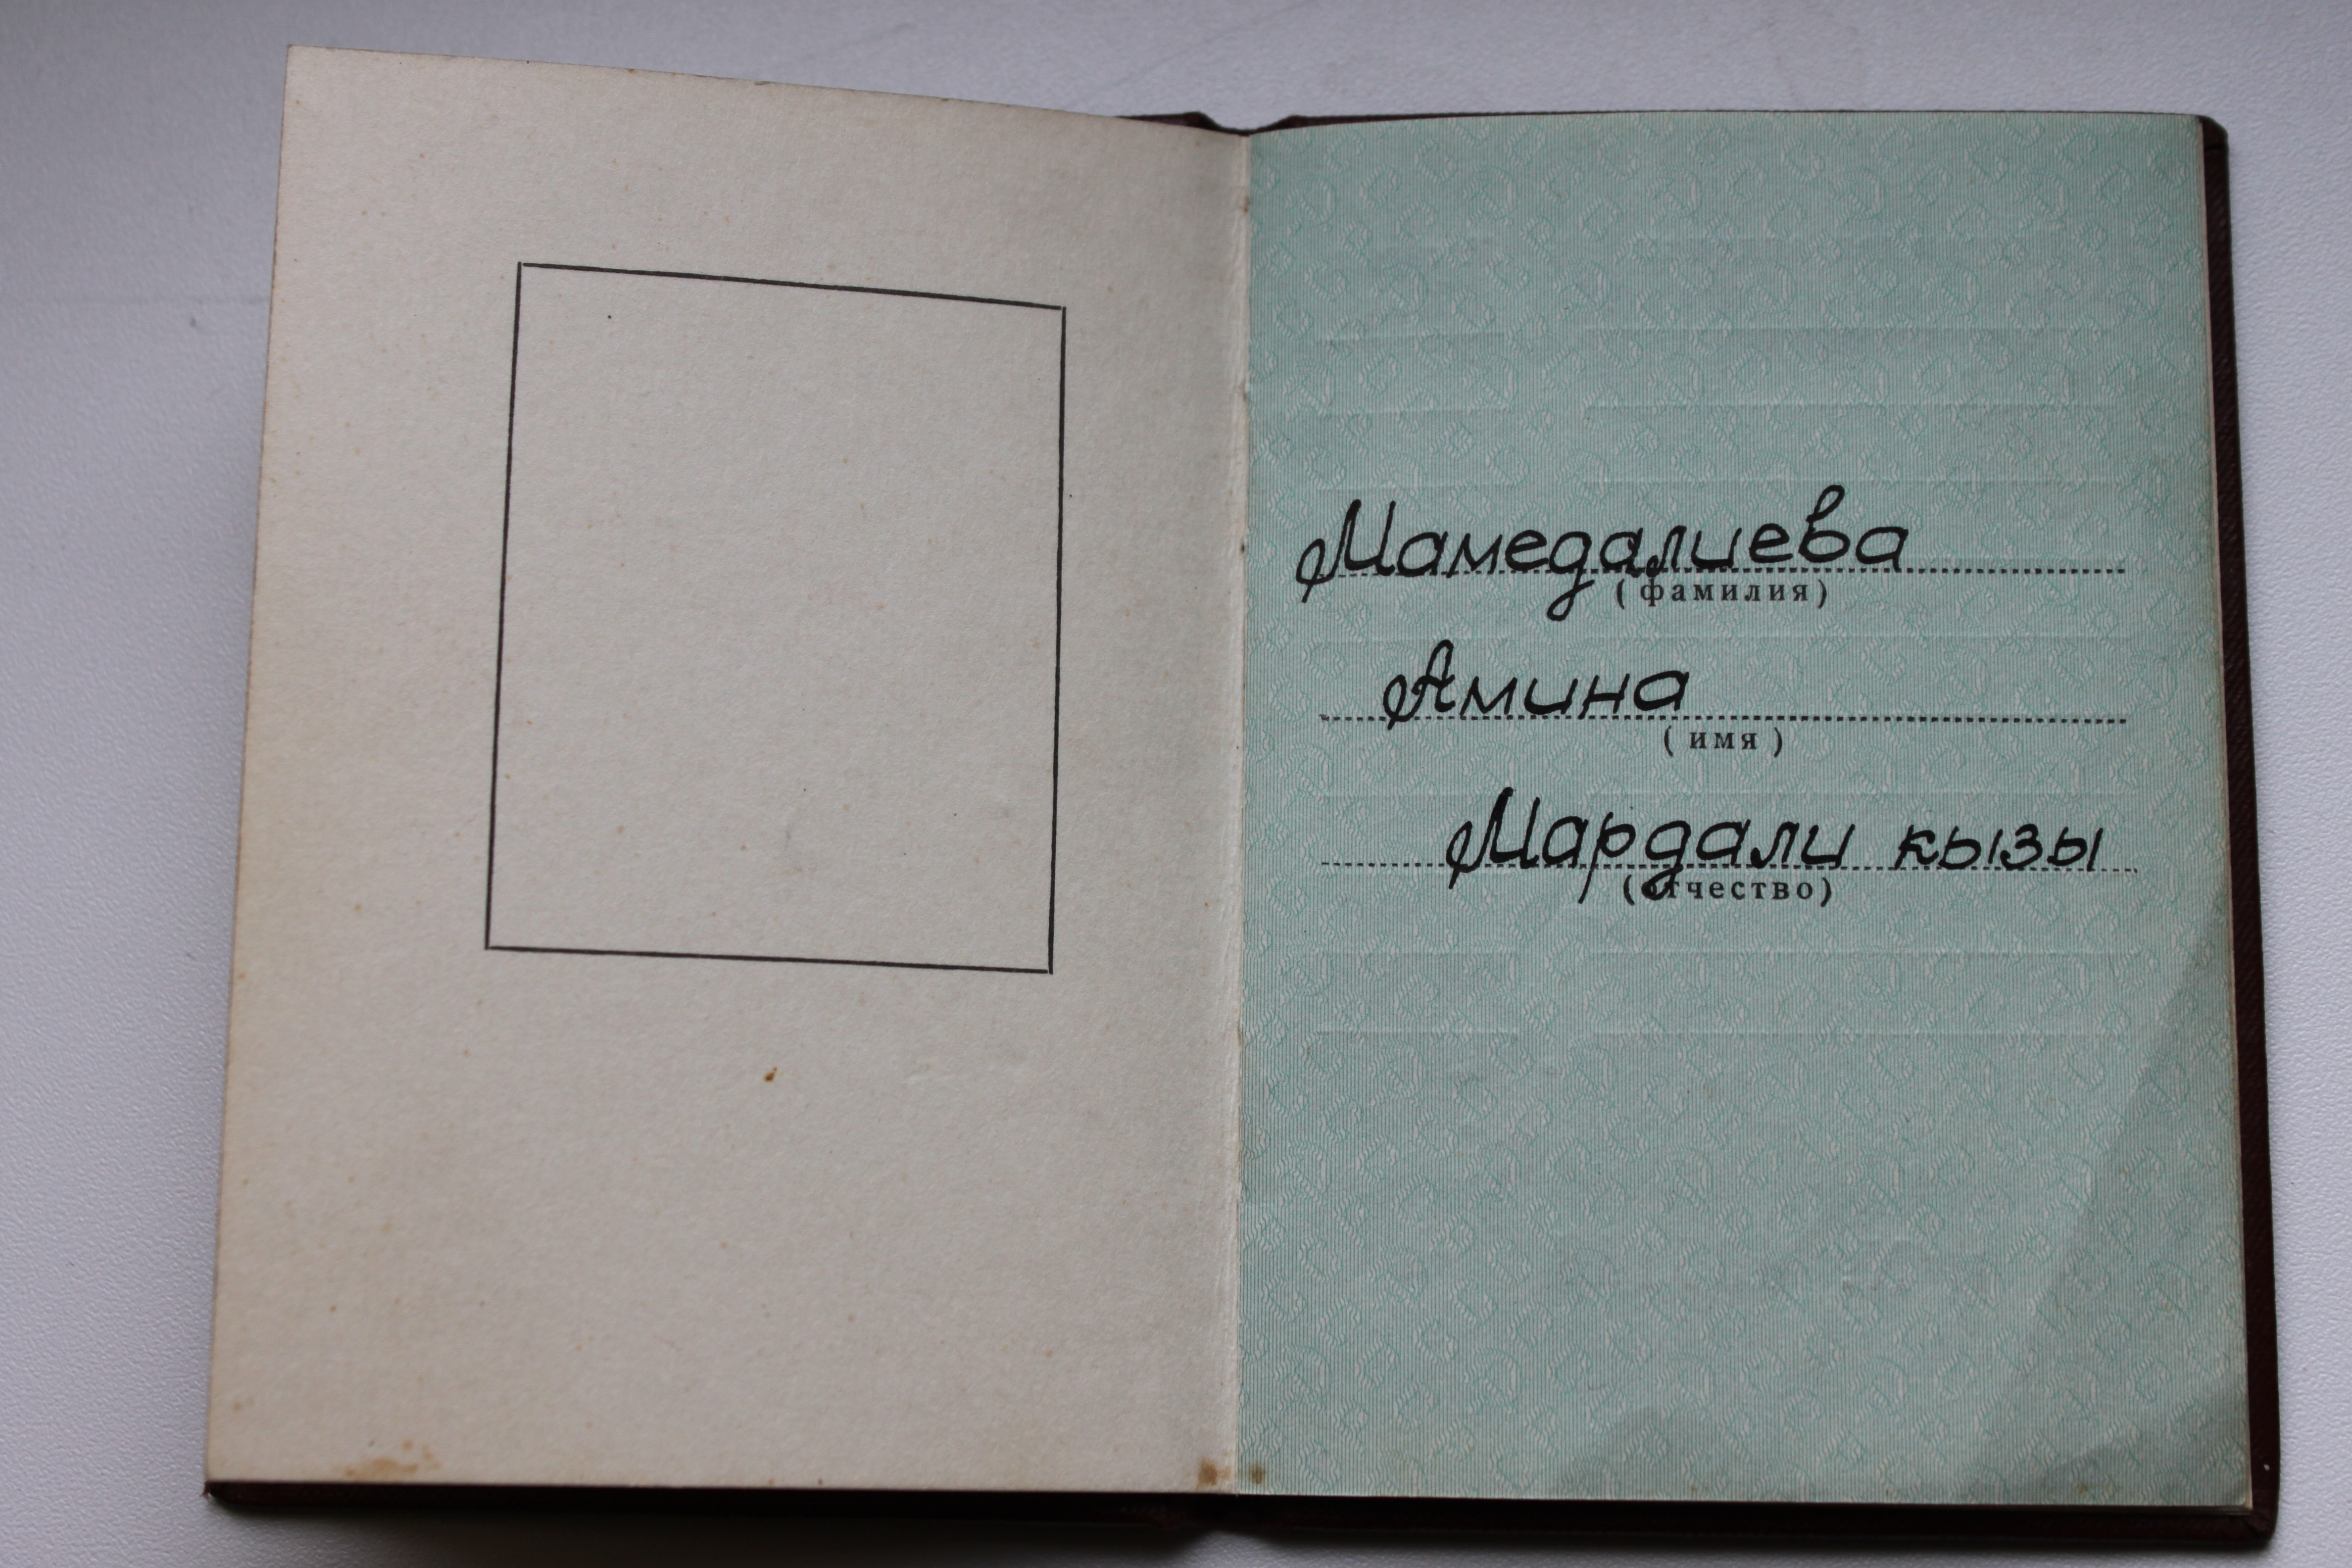 Мамедалиева
( фамилия )
Амина
( имя )
Мардали кызы
(отчество)